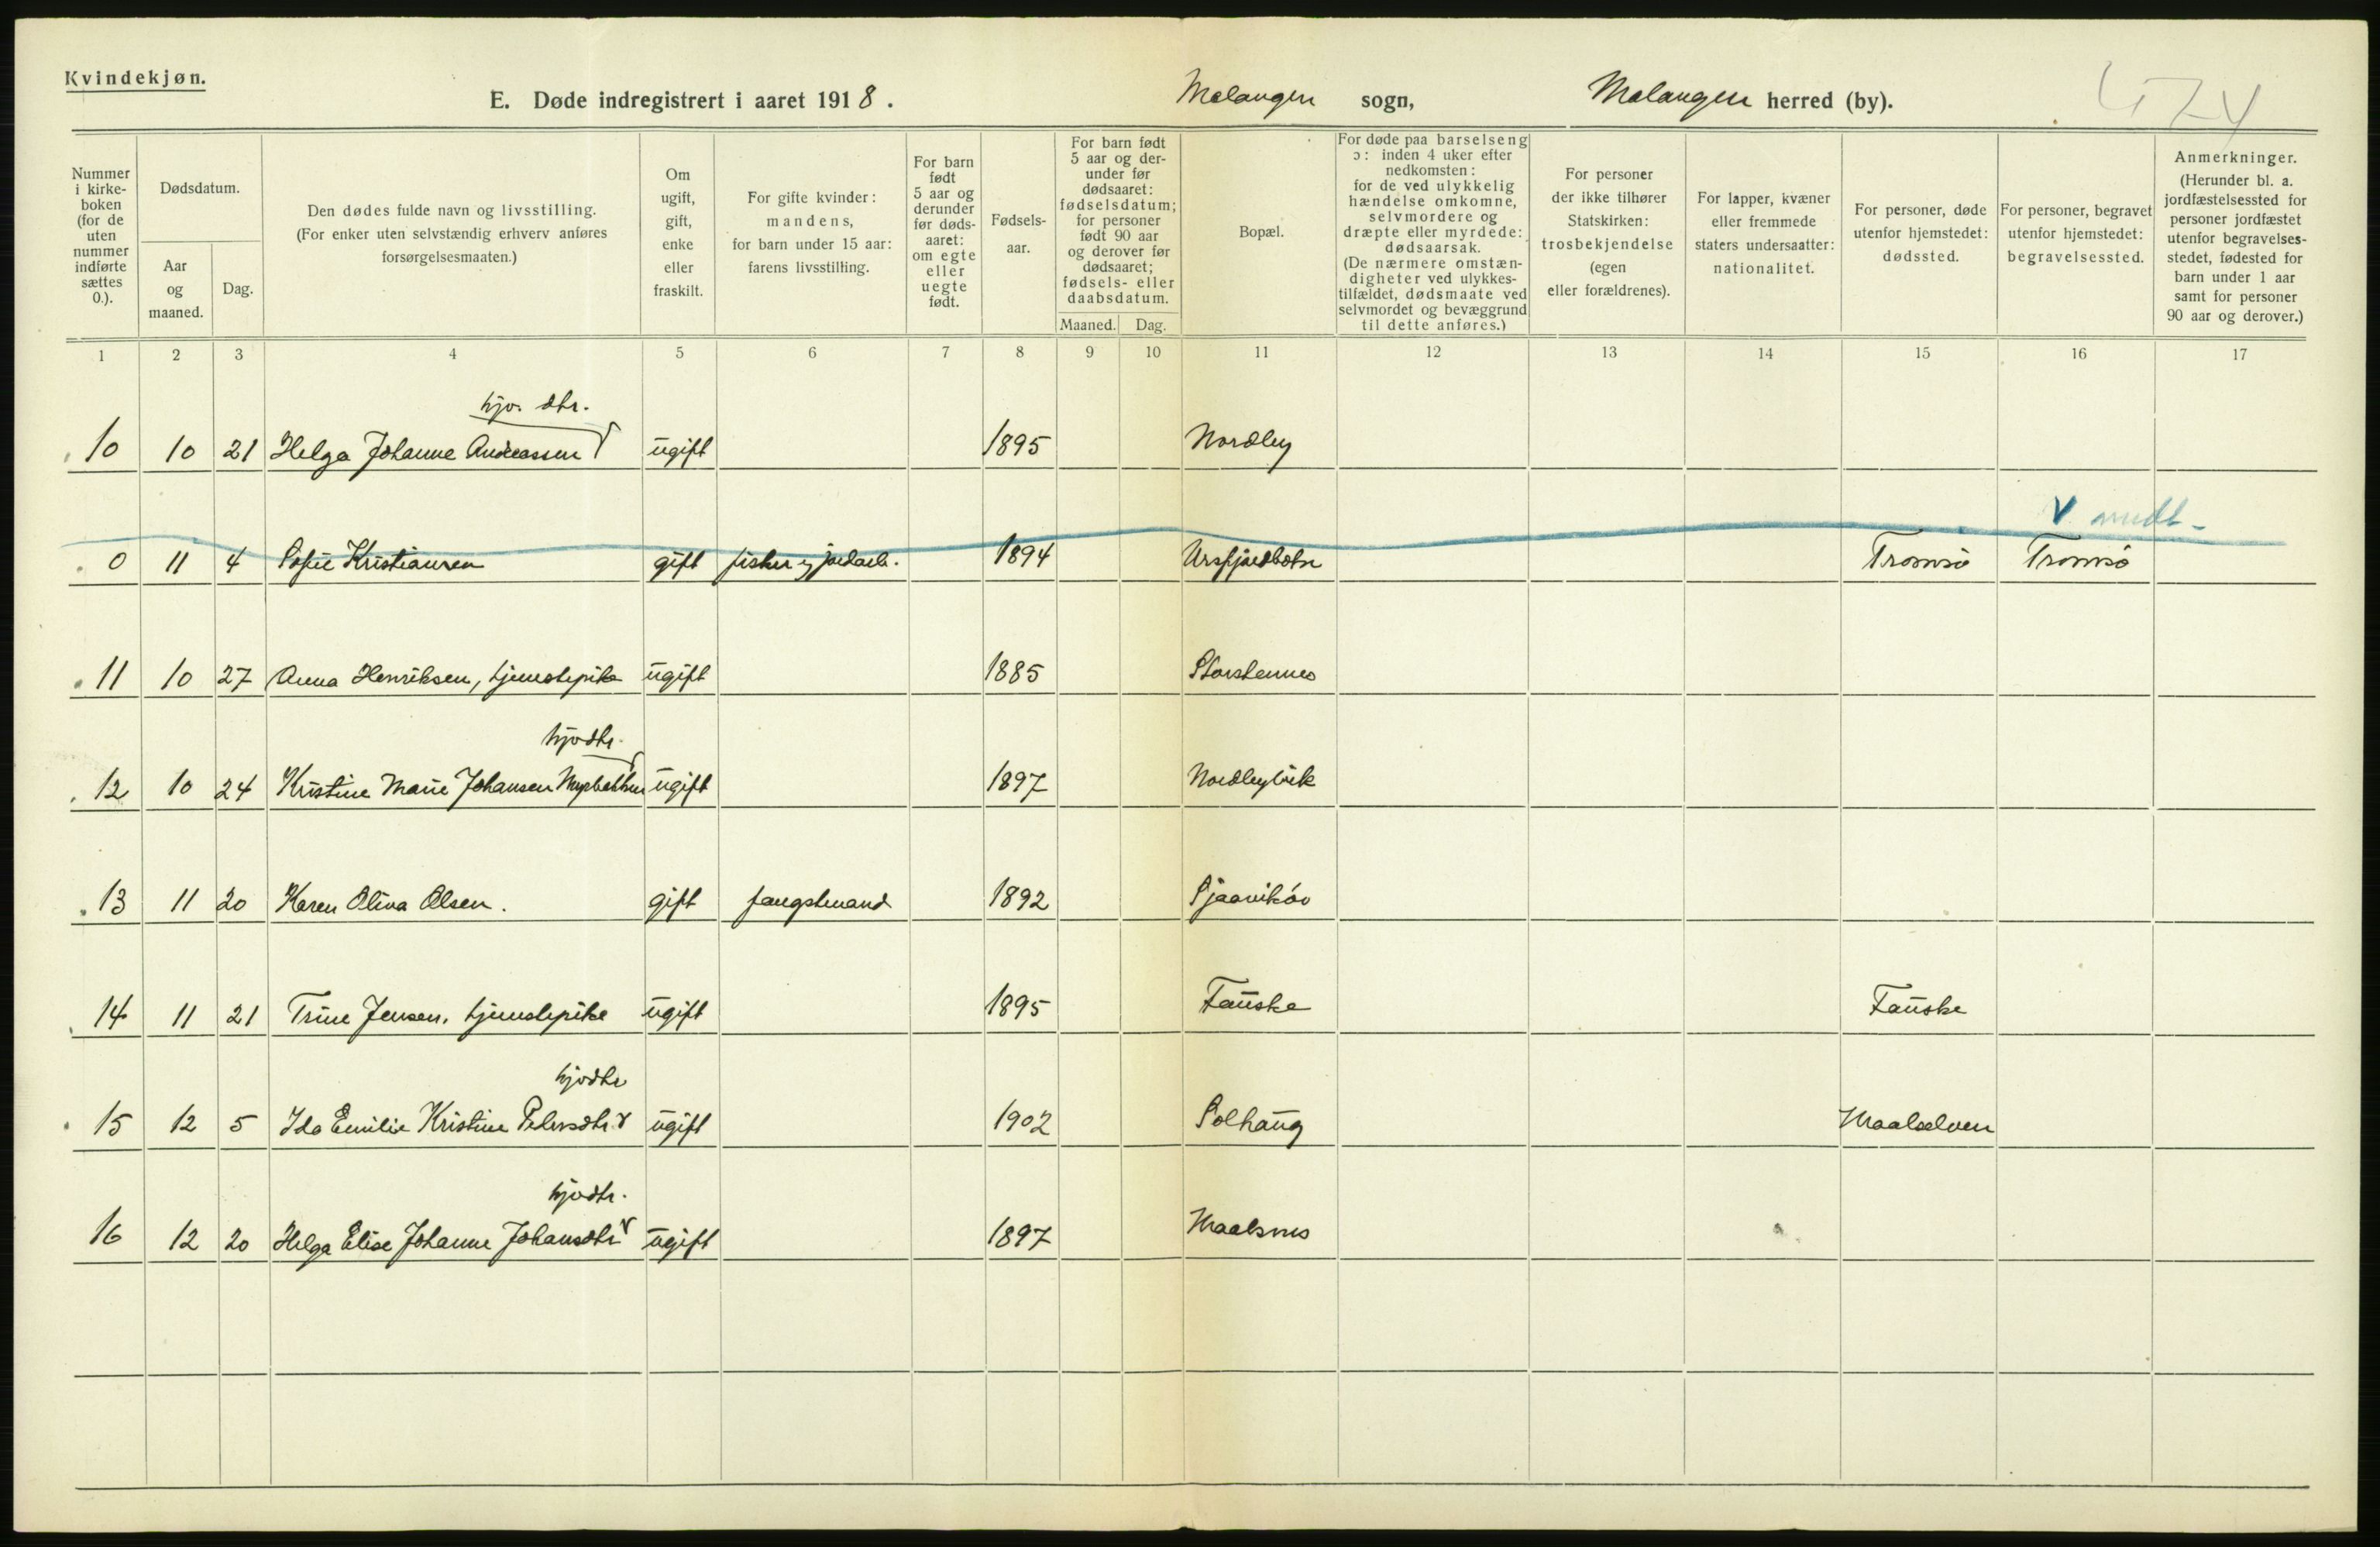 Kvindekjøn.
E. Døde indregistrert i aaret 1918. Malangen sogn, Malangen herred (by).
Nummer i kirkeboken (for de uten nummer indførte sættes 0.).
Dødsdatum.
Aar og maaned.
Dag.
Den dødes fulde navn og livsstilling. (For enker uten selvstændig erhverv anføres forsørgelsesmaaten.)
Om ugift, gift, enke eller fraskilt.
For gifte kvinder: mandens, for barn under 15 aar: farens livsstilling.
For barn født 5 aar og derunder før dødsaaret: om egte eller uegte født.
Fødselsaar.
For barn født 5 aar og derunder før dødsaaret: fødselsdatum; for personer født 90 aar og derover før dødsaaret; fødsels- eller daabsdatum.
Maaned. Dag.
Bopæl.
For døde paa barselseng ɔ: inden 4 uker efter nedkomsten: for de ved ulykkelig hændelse omkomne, selvmordere og dræpte eller myrdede: dødsaarsak. (De nærmere omstændigheter ved ulykkestilfældet, dødsmaate ved selvmordet og bevæggrund til dette anføres.)
For personer der ikke tilhører Statskirken: trosbekjendelse (egen eller forældrenes).
For lapper, kvæner eller fremmede staters undersaatter: nationalitet.
For personer, døde utenfor hjemstedet: dødssted.
For personer, begravet utenfor hjemstedet: begravelsessted.
Anmerkninger. (Herunder bl. a. jordfæstelsessted for personer jordfæstet utenfor begravelsesstedet, fødested for barn under 1 aar samt for personer 90 aar og derover.)
1 2 3 4 5 6 7 8 9 10 11 12 13 14 15 16 17
hjv. dtr.
10 10 21 Helga Johanne Andreassen ugift 1895 Nordby
0 11 4 Sofie Kristiansen gift fisker og jordarb. 1894 Ursfjordbotn Tromsø Tromsø
11 10 27 Anna Henriksen, tjenestepike ugift 1885 Storstennes
hjvdtr.
12 10 24 Kristine Marie Johansen ugift 1897 Nordbyvik
13 11 20 Karen Oliva Olsen. gift fangstmand 1892
14 11 21 Trine Jensen, tjenestepike ugift 1895 Fauske Fauske
hjvdtr
15 12 5 Ida Emilie Kristine Pedersdtr. ugift 1902 Solhaug Maalselven
hjvdtr.
16 12 20 Helga Elise Johanne Johansdtr ugift 1897 Maalsnes